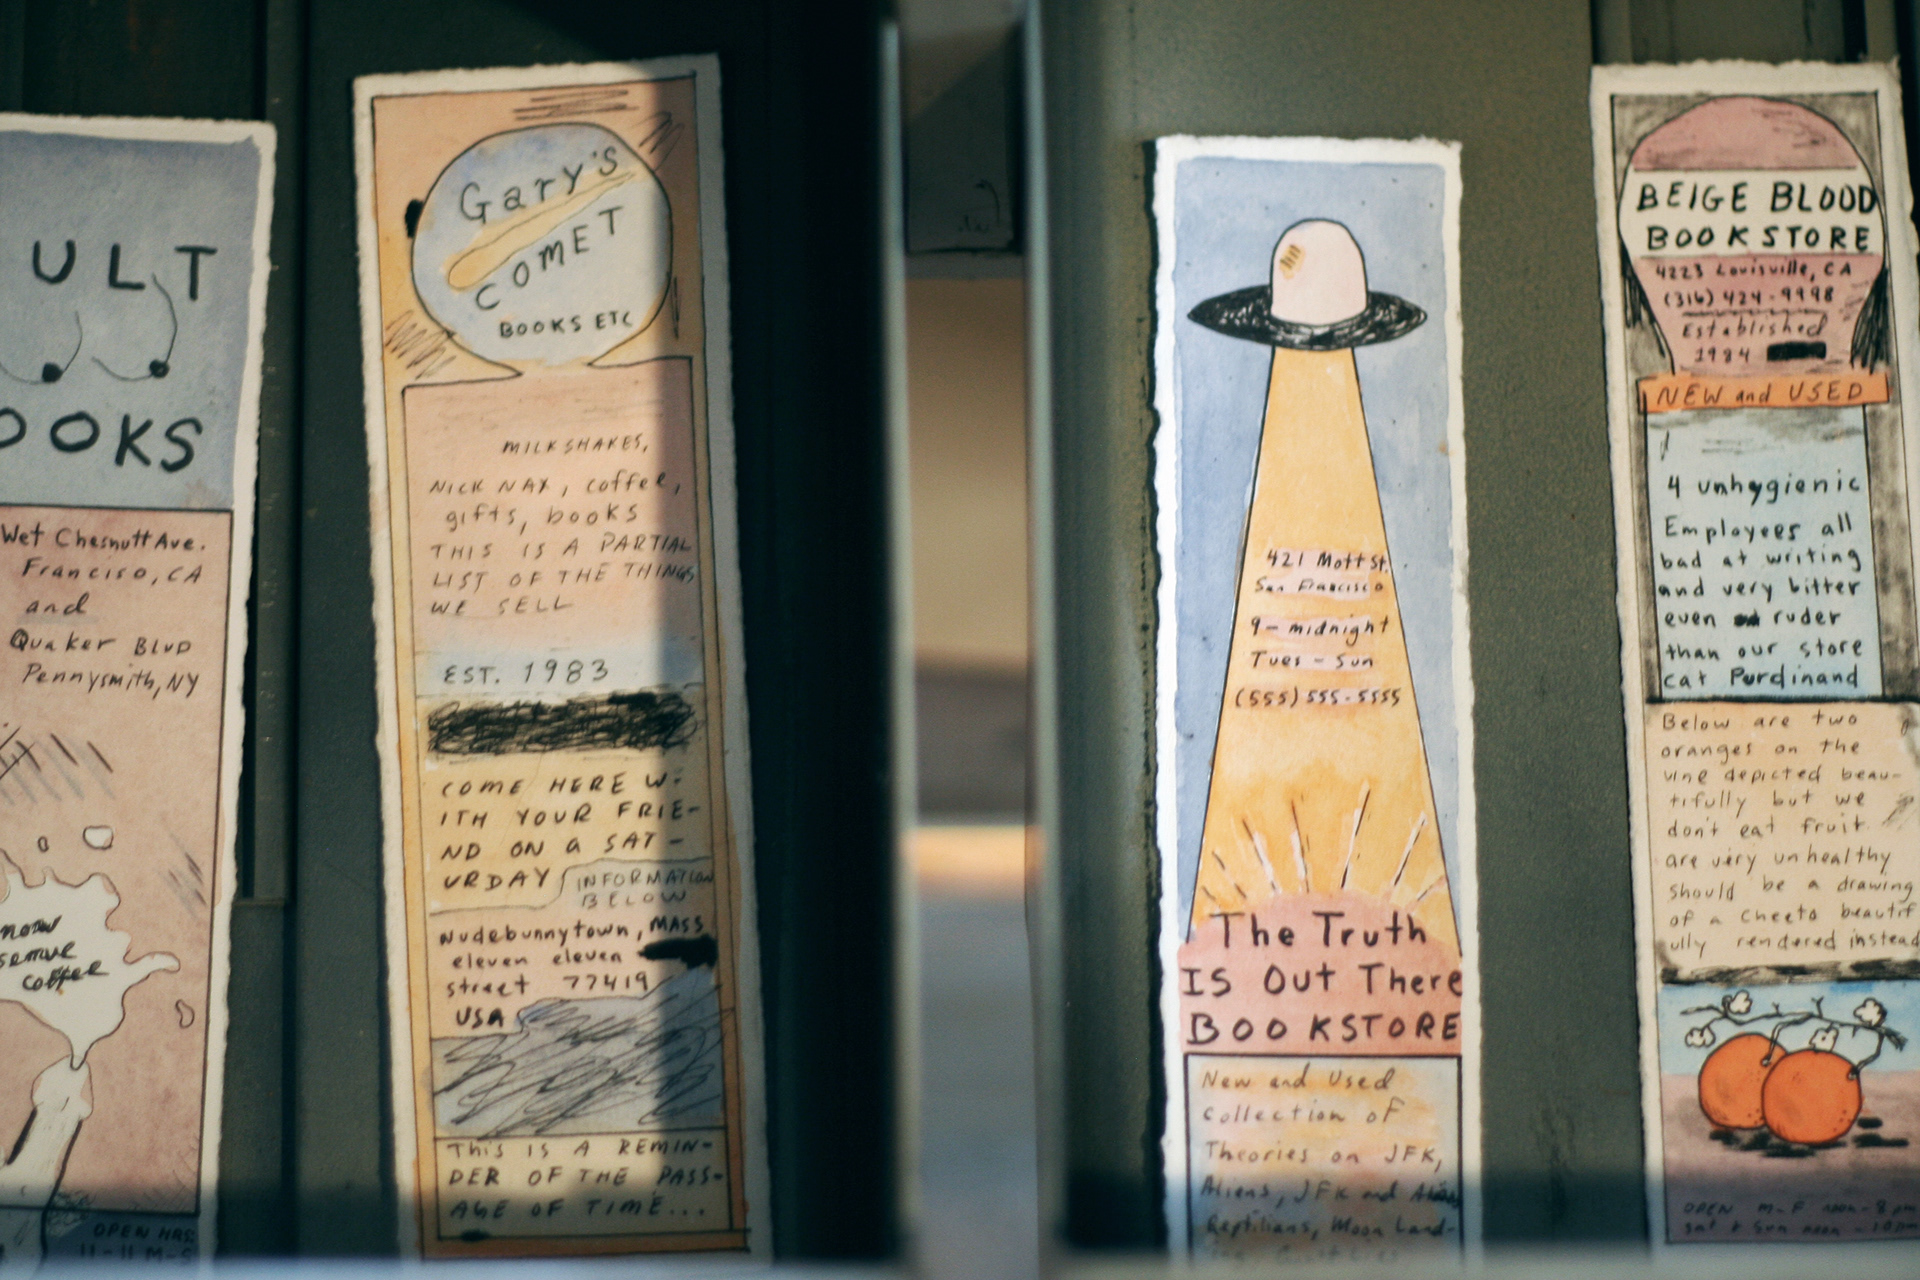 ULT
OOKS
Wet Chesnutt Ave.
Francisco, CA
and
Quaker Blvd
Pennysmith, NY
now
serve
coffee
OPEN HRS:
11-11 M-S
Gary's
COMET
BOOKS ETC
MILKSHAKES,
NICK NAX, coffee,
gifts, books
THIS IS A PARTIAL
LIST OF THE THINGS
WE SELL
EST. 1983
COME HERE W-
ITH YOUR FRIE-
ND ON a SAT-
URDAY
INFORMATION
BELOW
Nudebunnytown, MASS
eleven eleven
street 77419
USA
THIS IS A REMIN-
DER OF THE PASS-
AGE OF TIME...
421 Mott St.
San Francisco
9-midnight
Tues - Sun
(555) 555-5555
The Truth
IS Out There
BOOKSTORE
New and Used
collection of
Theories on JFK,
Aliens, JFK and Aliens
Reptilians, Moon Land-
BEIGE BLOOD
BOOKSTORE
4223 Louisville, CA
(316) 424-9998
Established
1984
NEW and USED
4 unhygienic
Employees all
bad at writing
and very bitter
even ruder
than our store
cat Purdinand
Below are two
oranges on the
vine depicted beau-
tifully but we
don't eat fruit
are very unhealthy
should be a drawing
of a Cheeto beautif
ully rendered instead
OPEN M-F noon-8pm
Sat & Sun noon-10pm